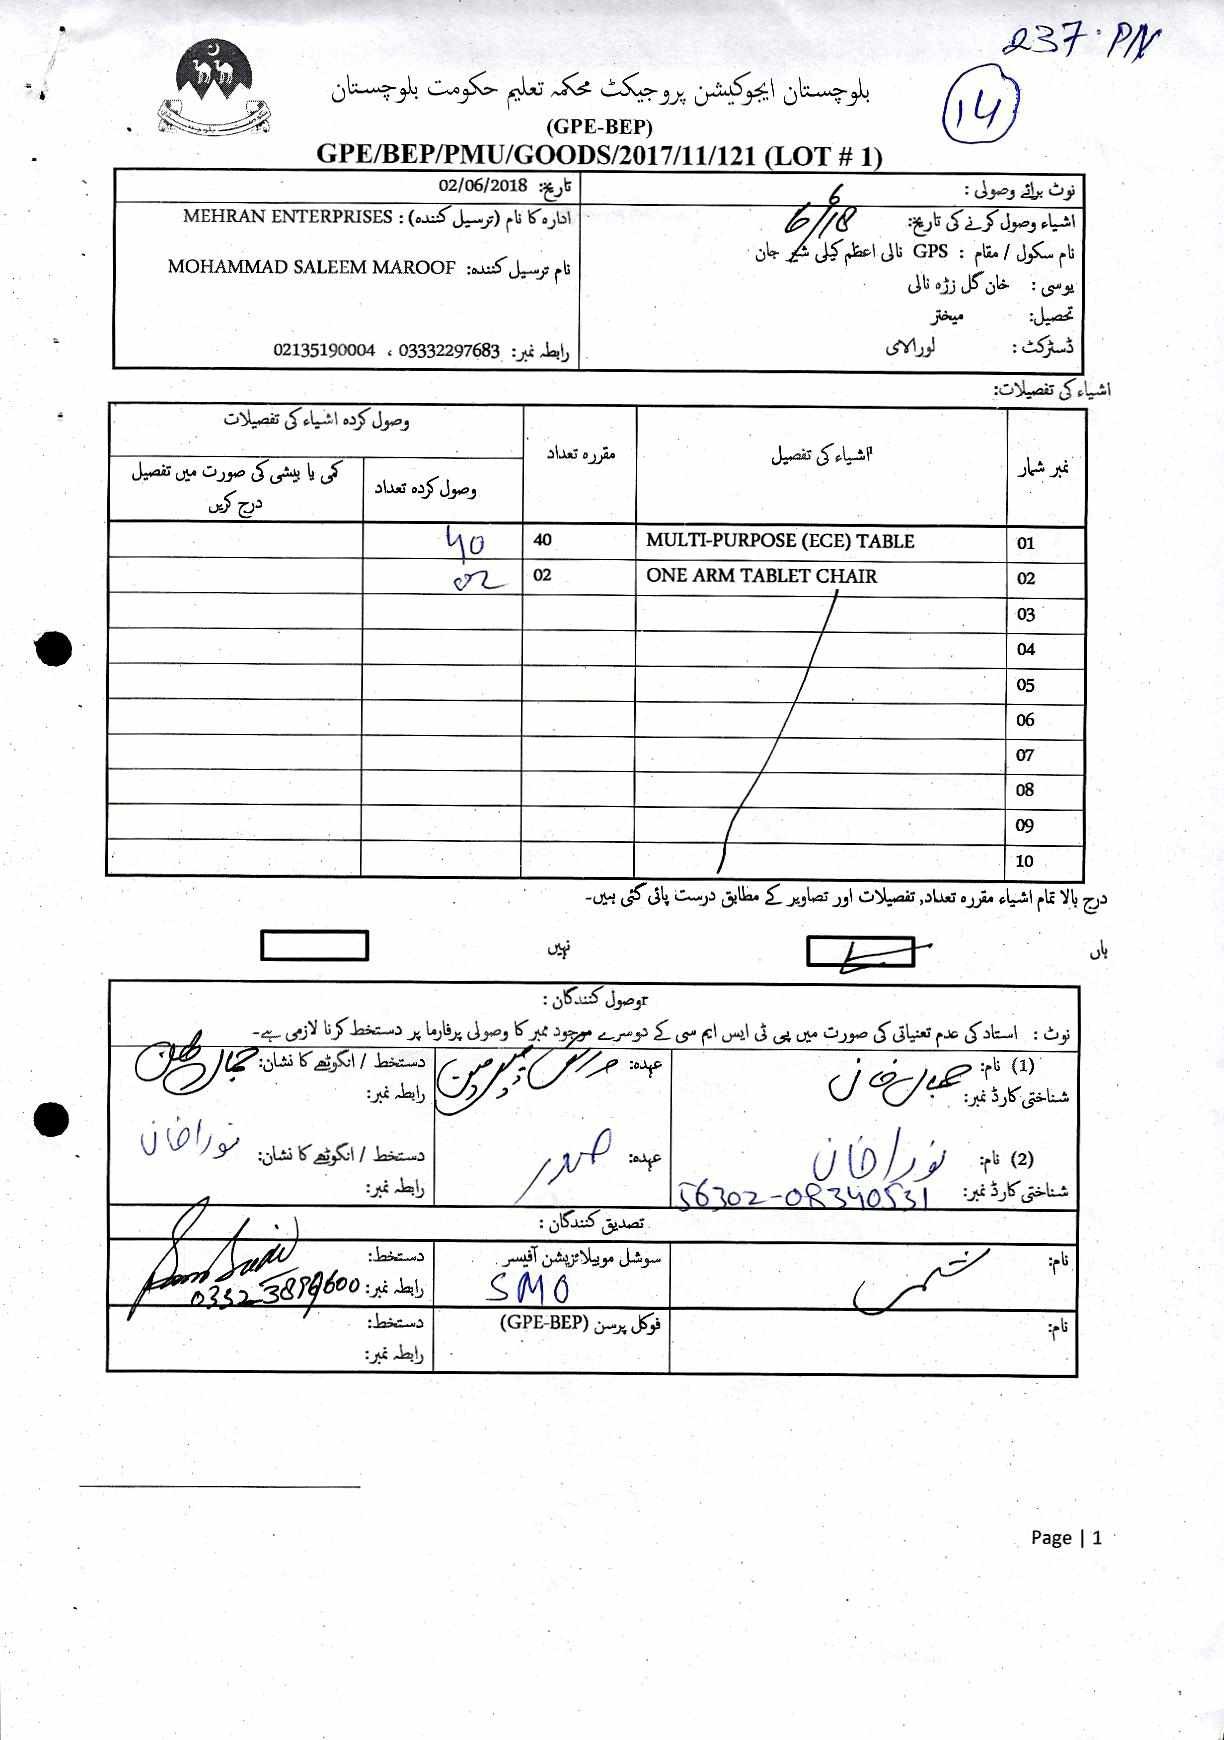 237.PN
14
بلوچستان ایجوکیشن پروجیکٹ محکمہ تعلیم حکومت بلوچستان
(GPE-BEP)
GPE/BEP/PMU/GOODS/2017/11/121 (LOT # 1)
نوٹ برائے وصولی :
اشیاء وصول کرنے کی تاریخ: 6/6/18
نام سکول / مقام : GPS نالی اعظم کیلی شیر جان
یوسی : خان گل زڑہ نالی
تحصیل: میختر
ڈسٹرکٹ : لورالائی
تاریخ: 02/06/2018
ادارہ کا نام (ترسیل کنندہ) : MEHRAN ENTERPRISES
نام ترسیل کنندہ: MOHAMMAD SALEEM MAROOF
رابطہ نمبر: 03332297683 ، 02135190004
اشیاء کی تفصیلات:
نمبر شمار اشیاء کی تفصیل مقررہ تعداد وصول کردہ اشیاء کی تفصیلات
وصول کردہ تعداد کمی یا بیشی کی صورت میں تفصیل درج کریں
01 MULTI-PURPOSE (ECE) TABLE 40 40
02 ONE ARM TABLET CHAIR 02 02
03
04
05
06
07
08
09
10
درج بالا تمام اشیاء مقررہ تعداد, تفصیلات اور تصاویر کے مطابق درست پائی گئی ہیں۔
ہاں نہیں
وصول کنندگان :
نوٹ : استاد کی عدم تعنیاتی کی صورت میں پی ٹی ایس ایم سی کے دوسرے موجود ممبر کا وصولی پرفارما پر دستخط کرنا لازمی ہے۔
(1) نام: عہدہ: دستخط / انگوٹھے کا نشان:
شناختی کارڈ نمبر: رابطہ نمبر:
(2) نام: نورا خان عہدہ: صدر دستخط / انگوٹھے کا نشان: نورا خان
شناختی کارڈ نمبر: 56302-08340531 رابطہ نمبر:
تصدیق کنندگان :
نام: شمس سوشل موبیلائزیشن آفیسر دستخط:
SMO رابطہ نمبر:
نام: فوکل پرسن (GPE-BEP) دستخط:
رابطہ نمبر:
Page | 1